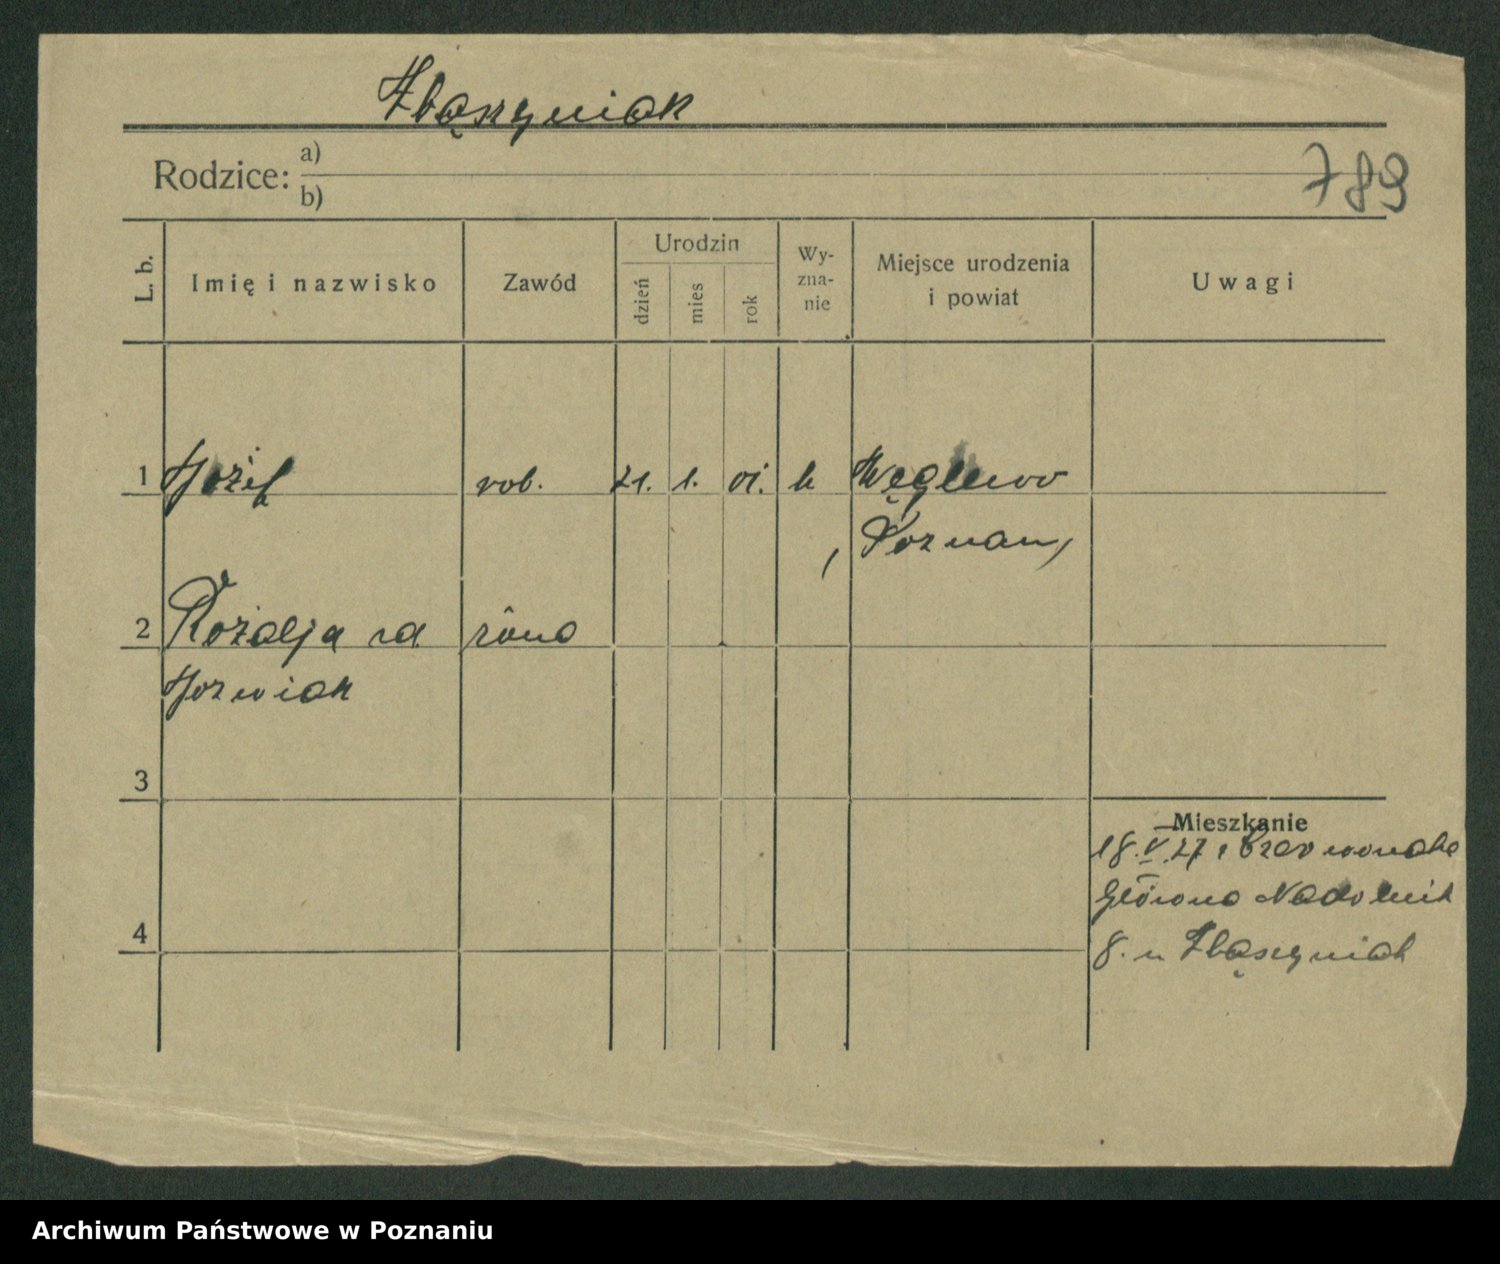 Zbąszyniak
Rodzice: a)
b)
789
L. b.
Imię i nazwisko
Zawód
Urodzin
dzień
mies
rok
Wy-
zna-
nie
Miejsce urodzenia
i powiat
Uwagi
1 Józef rob. 21. 1. 01. k Węglewo
Poznań
2 Rozalja zd żona
Jozwiak
3
Mieszkanie
18. V. 27
Główna Nadolnik
4
8. u Zbąszyniak
Archiwum Państwowe w Poznaniu